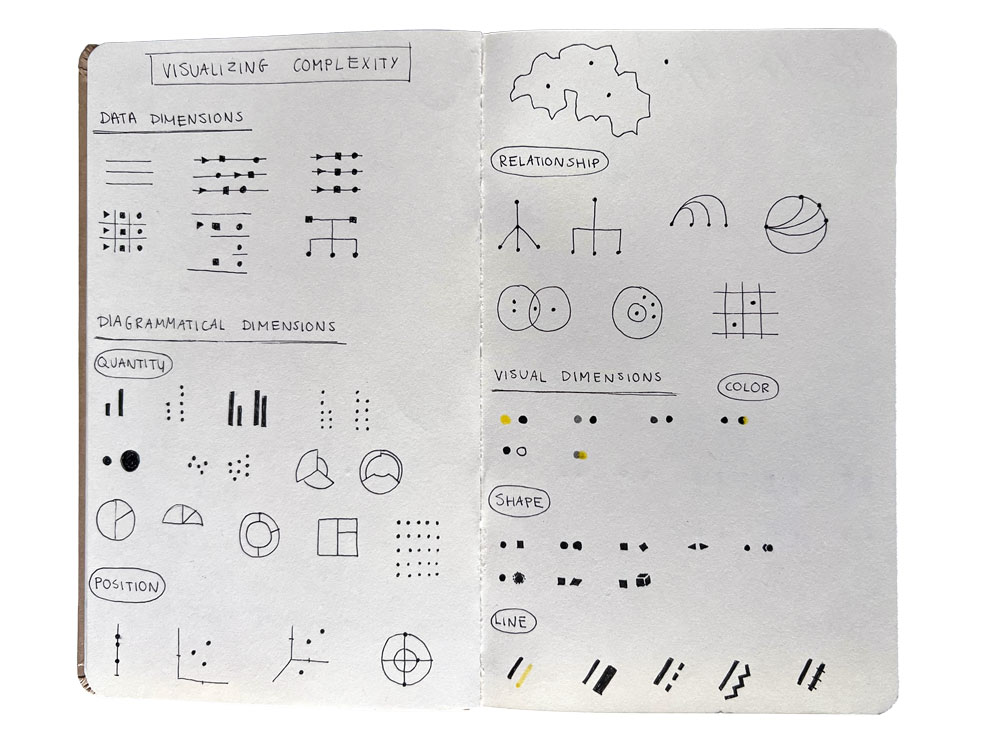 VISUALIZING COMPLEXITY
DATA DIMENSIONS
DIAGRAMMATICAL DIMENSIONS
QUANTITY
POSITION
RELATIONSHIP
VISUAL DIMENSIONS
COLOR
SHAPE
LINE